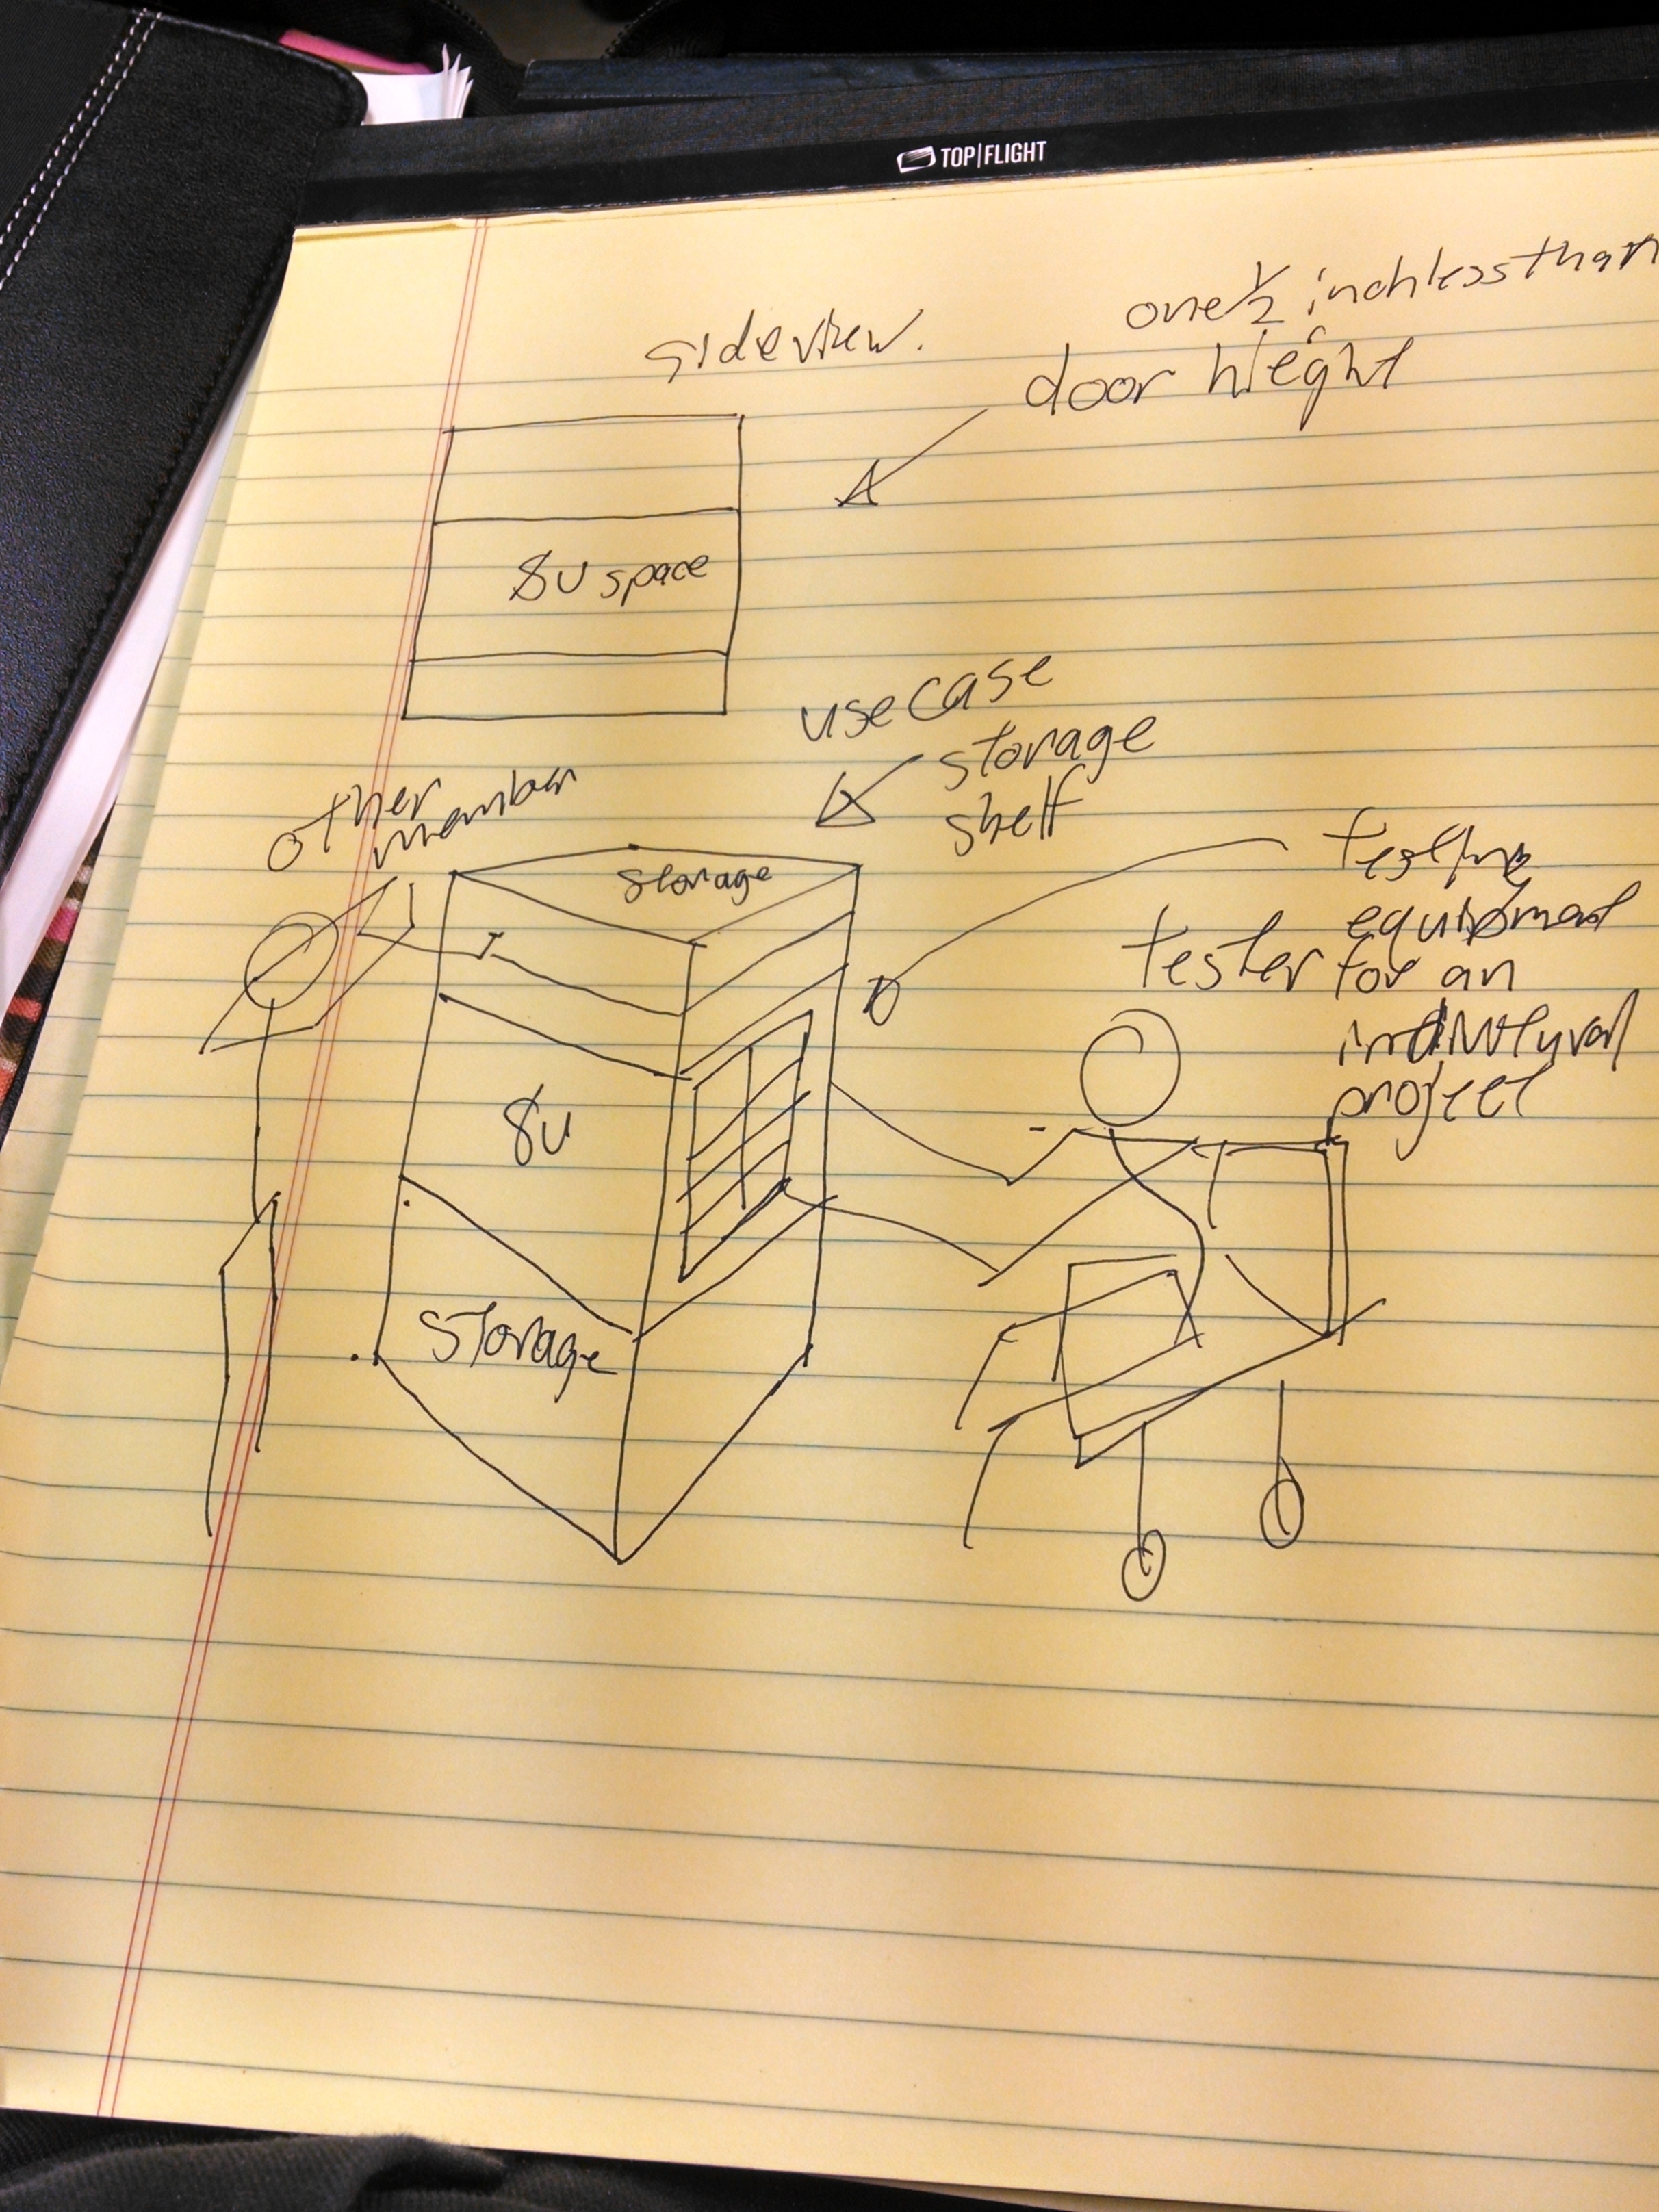 TOP|FLIGHT
side view.
one 1/2 inch less than
door hieght
8U space
use case
storage
shelf
other
member
storage
testing
equipment
tester for an
project
8U
Storage